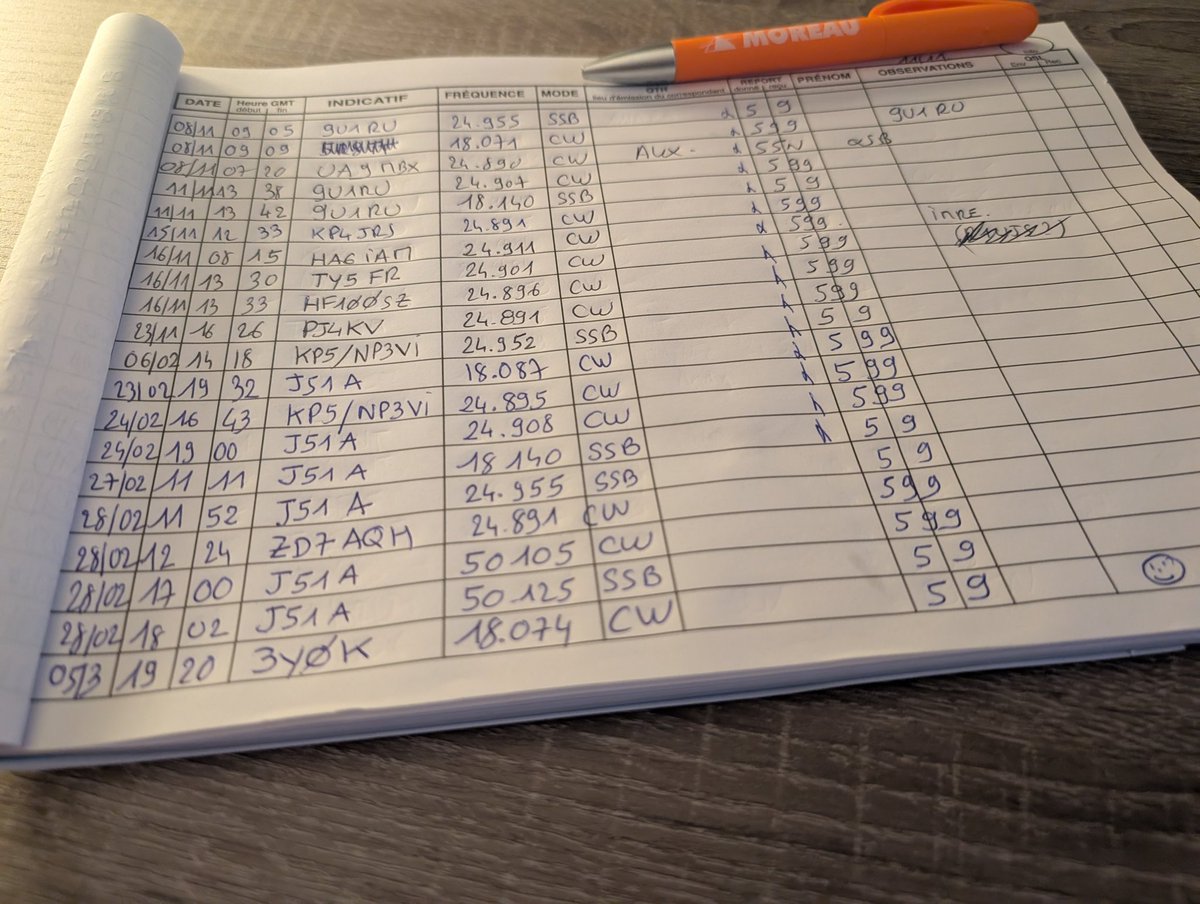 MOREAU
DATE Heure GMT début fin INDICATIF FRÉQUENCE MODE QTH lieu d'émission du correspondant REPORT donné reçu PRÉNOM OBSERVATIONS QSL Env Reç
08/11 09 05 9U1RU 24.955 SSB 59 9U1RU
08/11 09 09 18.071 CW 599
08/11 07 20 UA9MBX 24.890 CW AUX. 55N QSB
11/11 13 38 9U1RU 24.907 CW 599
11/11 13 42 9U1RU 18.140 SSB 59
15/11 12 33 KP4JRS 24.891 CW 599
16/11 08 15 HA6iAM 24.911 CW 599.
16/11 13 30 TY5FR 24.901 CW 599
16/11 13 33 HF1ØØSZ 24.896 CW 599
23/11 16 26 PJ4KV 24.891 CW 599
06/02 14 18 KP5/NP3Vi 24.952 SSB 59
23/02 19 32 J51A 18.087 CW 599
24/02 16 43 KP5/NP3Vi 24.895 CW 599
24/02 19 00 J51A 24.908 CW 599
27/02 11 11 J51A 18140 SSB 59
28/02 11 52 J51A 24.955 SSB 59
28/02 12 24 ZD7AQH 24.891 CW 599
28/02 17 00 J51A 50105 CW 599
28/02 18 02 J51A 50125 SSB 59
05/3 19 20 3YØK 18.074 CW 59